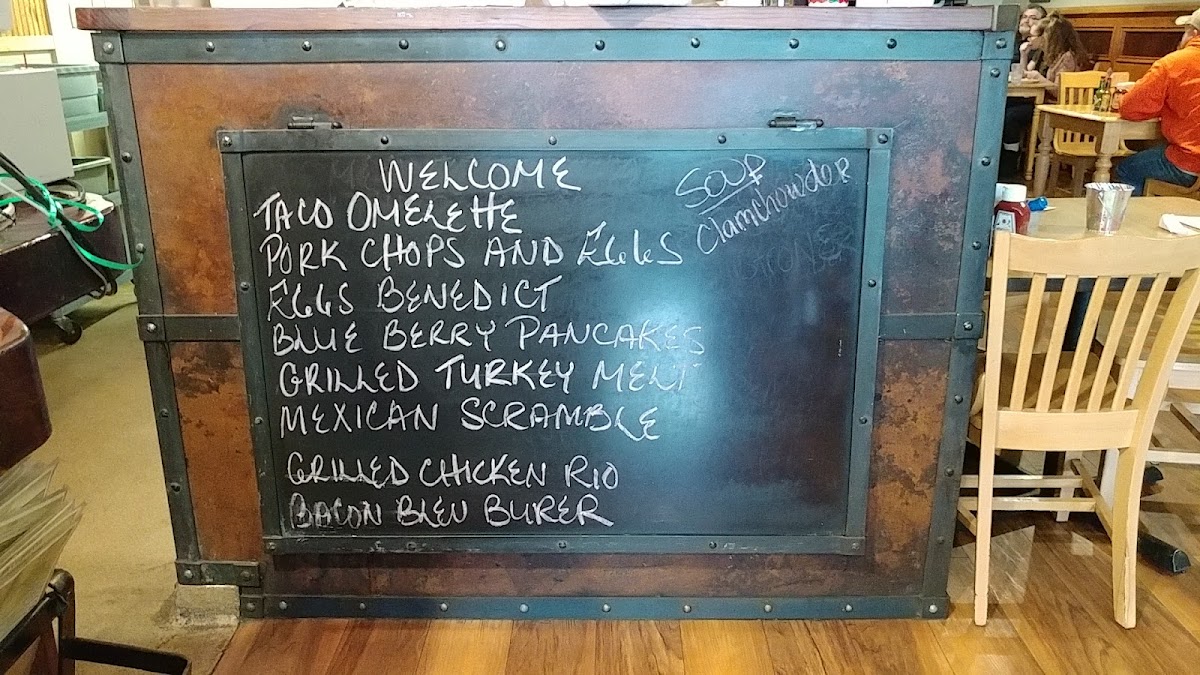 WELCOME
TACO OMELETTE
PORK CHOPS AND EGGS
EGGS BENEDICT
BLUE BERRY PANCAKES
GRILLED TURKEY MELT
MEXICAN SCRAMBLE
GRILLED CHICKEN RIO
BACON BLEU BURER
SOUP
Clamchowder